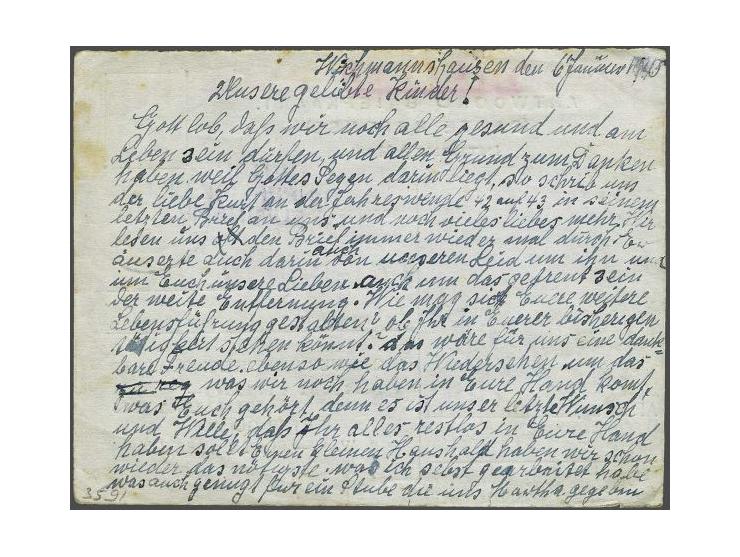 Wichmannshausen den 6 Januar 1945
Unsere geliebte Kinder!
Gott lob, daß wir noch alle gesund und am
Leben sein dürfen, und allen Grund zum Danken
haben, weil Gottes Segen darin liegt, so schrieb uns
der liebe Kurt an der Jahreswende 42 auf 43 in seinem
letzten Brief an uns und noch vieles liebes mehr. Wir
lesen uns oft den Brief immer wieder mal durch. Er
äuserte auch darin von unseren Leid um ihn und
auch
um Euch unsere Lieben auch um das getrent sein
der weite Entfernung. Wie mag sich Euere weitere
Lebensführung gestalten? ob Ihr in Euerer bisherigen
stehen könnt? das wäre für uns eine dank-
bare Freude. ebenso wie das Wiedersehen um das
was wir noch haben in Eure Hand komt,
was Euch gehört, denn es ist unser letzte Wunsch
und Wille, daß Ihr alles restlos in Eure Hand
haben sollt. Einen kleinen Haushald haben wir schon
wieder das nötigste. was ich selbst gearbeitet habe
was auch genugt für ein Stube die uns Martha gegeben
35.91